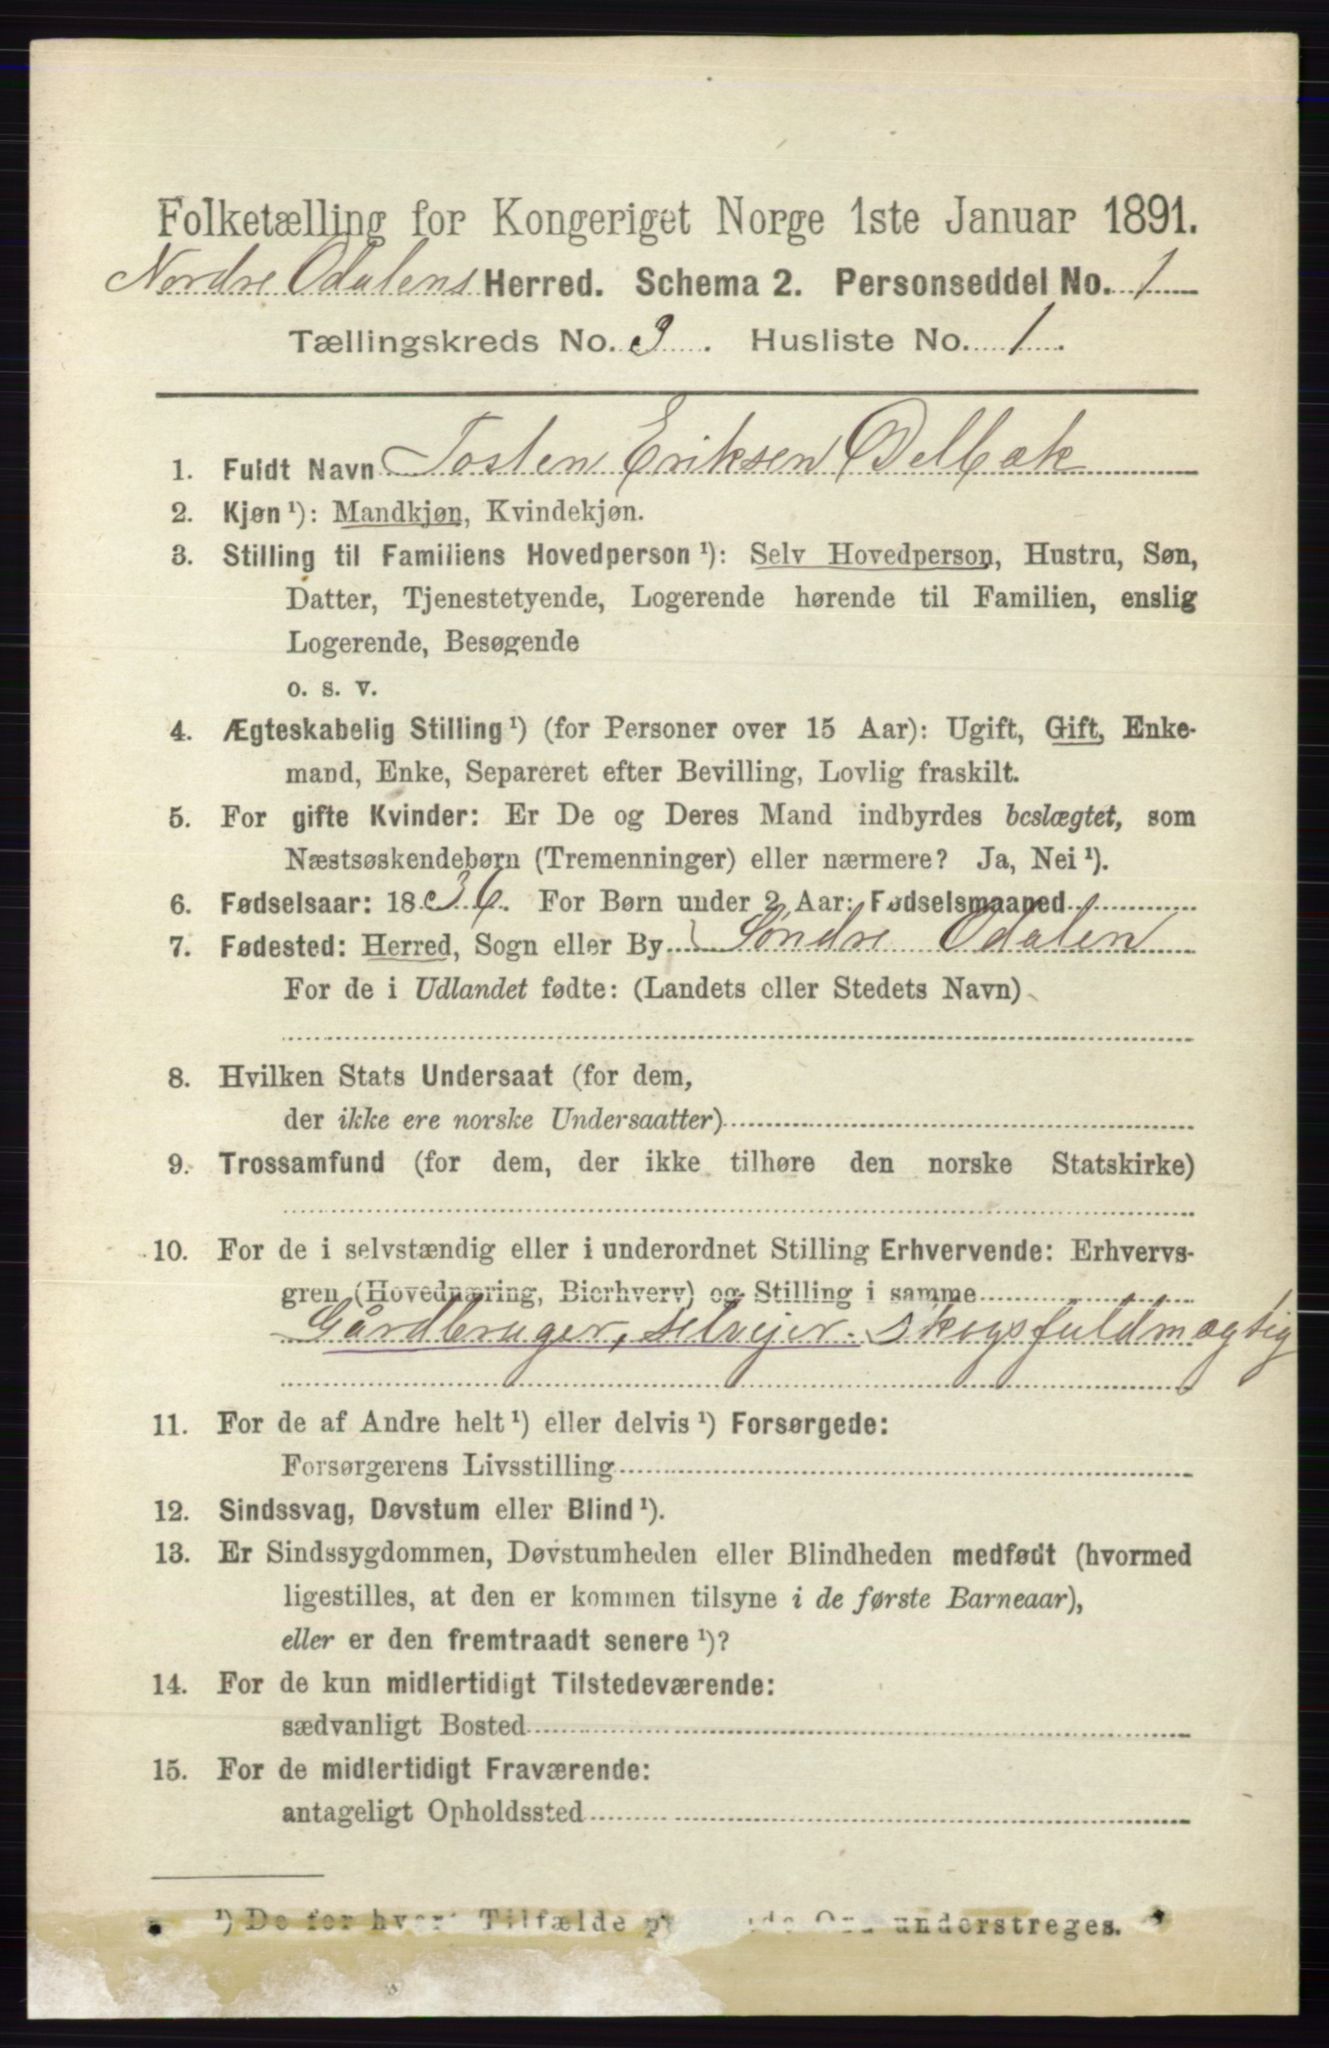 Folketælling for Kongeriget Norge 1ste Januar 1891.
Nordre Odalens Herred. Schema 2. Personseddel No. 1
Tællingskreds No. 3. Husliste No. 1.
1. Fuldt Navn Tosten Eriksen Delbæk
2. Kjøn ¹): Mandkjøn, Kvindekjøn.
3. Stilling til Familiens Hovedperson ¹): Selv Hovedperson, Hustru, Søn,
Datter, Tjenestetyende, Logerende hørende til Familien, enslig
Logerende, Besøgende
o. s. v.
4. Ægteskabelig Stilling ¹) (for Personer over 15 Aar): Ugift, Gift, Enke-
mand, Enke, Separeret efter Bevilling, Lovlig fraskilt.
5. For gifte Kvinder: Er De og Deres Mand indbyrdes beslægtet, som
Næstsøskendebørn (Tremenninger) eller nærmere? Ja, Nei ¹).
6. Fødselsaar: 1836. For Børn under 2 Aar: Fødselsmaaned
7. Fødested: Herred, Sogn eller By Søndre Odalen
For de i Udlandet fødte: (Landets eller Stedets Navn)
8. Hvilken Stats Undersaat (for dem,
der ikke ere norske Undersaatter)
9. Trossamfund (for dem, der ikke tilhøre den norske Statskirke)
10. For de i selvstændig eller i underordnet Stilling Erhvervende: Erhvervs-
gren (Hovednæring, Bierhverv) og Stilling i samme
Gårdbruger, selvejer. Skogsfuldmægtig
11. For de af Andre helt ¹) eller delvis ¹) Forsørgede:
Forsørgerens Livsstilling
12. Sindssvag, Døvstum eller Blind ¹).
13. Er Sindssygdommen, Døvstumheden eller Blindheden medfødt (hvormed
ligestilles, at den er kommen tilsyne i de første Barneaar),
eller er den fremtraadt senere ¹)?
14. For de kun midlertidigt Tilstedeværende:
sædvanligt Bosted
15. For de midlertidigt Fraværende:
antageligt Opholdssted
¹) De for hvert Tilfælde understreges.